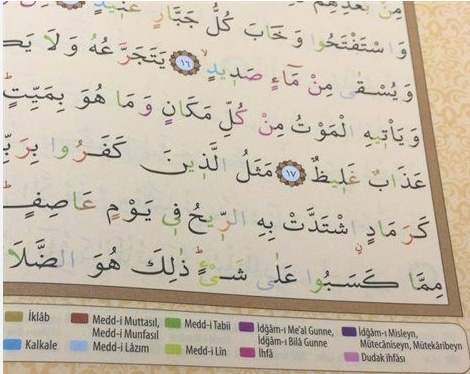 مِنْ بَعْدِهِمْ
وَاسْتَفْتَحُوا وَخَابَ كُلُّ جَبَّارٍ عَنِيدٍ
وَيُسْقٰى مِنْ مَٓاءٍ صَدِيدٍۙ ﴿١٦﴾ يَتَجَرَّعُهُ وَلَا
وَيَأْتِيهِ الْمَوْتُ مِنْ كُلِّ مَكَانٍ وَمَا هُوَ بِمَيِّتٍ
عَذَابٌ غَلِيظٌ ﴿١٧﴾ مَثَلُ الَّذِينَ كَفَرُوا
كَرَمَادٍ اشْتَدَّتْ بِهِ الرِّيحُ فِي يَوْمٍ عَاصِفٍ
مِمَّا كَسَبُوا عَلٰى شَيْءٍ ذٰلِكَ هُوَ
İklâb
Medd-i Muttasıl,
Medd-i Munfasıl
Medd-i Tabii
İdğâm-ı Me'al Gunne,
İdğâm-ı Bilâ Gunne
İdğâm-ı Misleyn,
Mütecâniseyn, Mütekâribeyn
Kalkale
Medd-i Lâzım
Medd-i Lin
İhfâ
Dudak ihfâsı